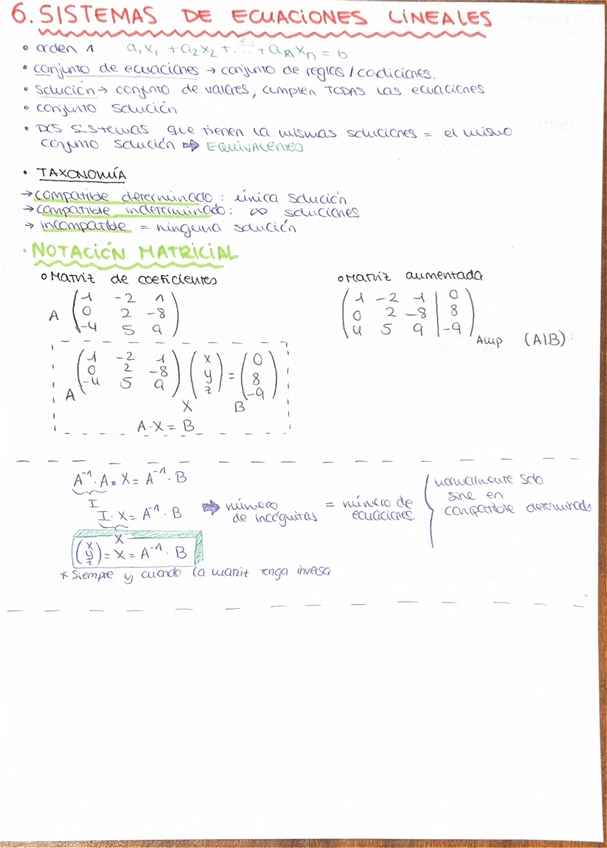 6. SISTEMAS DE ECUACIONES LINEALES
• orden 1 a₁x₁ + a₂x₂ + ... + aₙxₙ = b
• conjunto de ecuaciones → conjunto de reglas / condiciones.
• solución → conjunto de valores, cumplen TODAS las ecuaciones
• conjunto solución
• DOS SISTEMAS que tienen la mismas soluciones = el mismo
conjunto solución ⇨ EQUIVALENTES
• TAXONOMÍA
→ compatible determinado : única solución
→ compatible indeterminado : ∞ soluciones
→ incompatible = ninguna solución
• NOTACIÓN MATRICIAL
o Matriz de coeficientes
A
1 -2 1
0 2 -8
-4 5 9
o Matriz aumentada
1 -2 -1 | 0
0 2 -8 | 8
4 5 9 | -9
Amp (A|B)
A
1 -2 1
0 2 -8
-4 5 9
x
y
z
=
0
8
-9
X B
A·X = B
A⁻¹·A·X = A⁻¹·B
I
I·X = A⁻¹·B
X
(x y z) = X = A⁻¹·B
⇨ número de incógnitas = número de ecuaciones.
normalmente solo
sirve en
compatible determinado
* Siempre y cuando la matriz tenga inversa